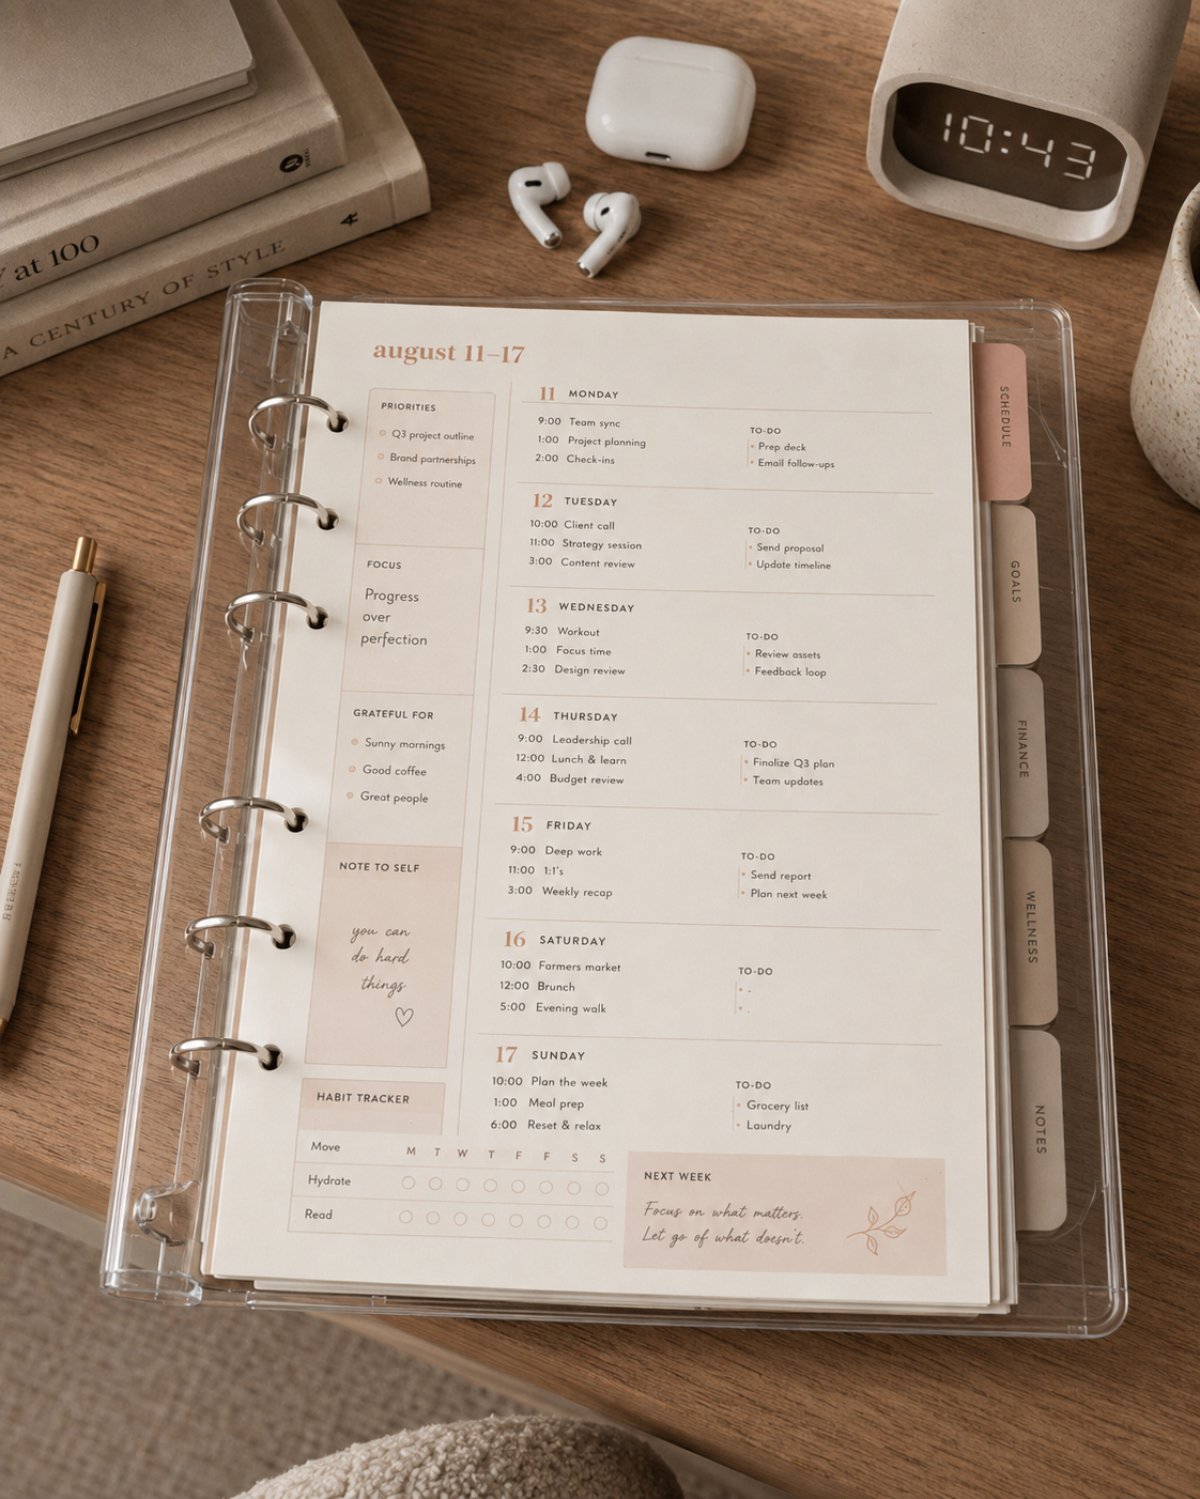 at 100
A CENTURY OF STYLE
10:43
august 11–17
PRIORITIES
Q3 project outline
Brand partnerships
Wellness routine
FOCUS
Progress
over
perfection
GRATEFUL FOR
Sunny mornings
Good coffee
Great people
NOTE TO SELF
you can
do hard
things
HABIT TRACKER
Move
M T W T F F S S
Hydrate
Read
11 MONDAY
9:00 Team sync
1:00 Project planning
2:00 Check-ins
TO-DO
Prep deck
Email follow-ups
12 TUESDAY
10:00 Client call
11:00 Strategy session
3:00 Content review
TO-DO
Send proposal
Update timeline
13 WEDNESDAY
9:30 Workout
1:00 Focus time
2:30 Design review
TO-DO
Review assets
Feedback loop
14 THURSDAY
9:00 Leadership call
12:00 Lunch & learn
4:00 Budget review
TO-DO
Finalize Q3 plan
Team updates
15 FRIDAY
9:00 Deep work
11:00 1:1's
3:00 Weekly recap
TO-DO
Send report
Plan next week
16 SATURDAY
10:00 Farmers market
12:00 Brunch
5:00 Evening walk
TO-DO
17 SUNDAY
10:00 Plan the week
1:00 Meal prep
6:00 Reset & relax
TO-DO
Grocery list
Laundry
NEXT WEEK
Focus on what matters.
Let go of what doesn't.
SCHEDULE
GOALS
FINANCE
WELLNESS
NOTES